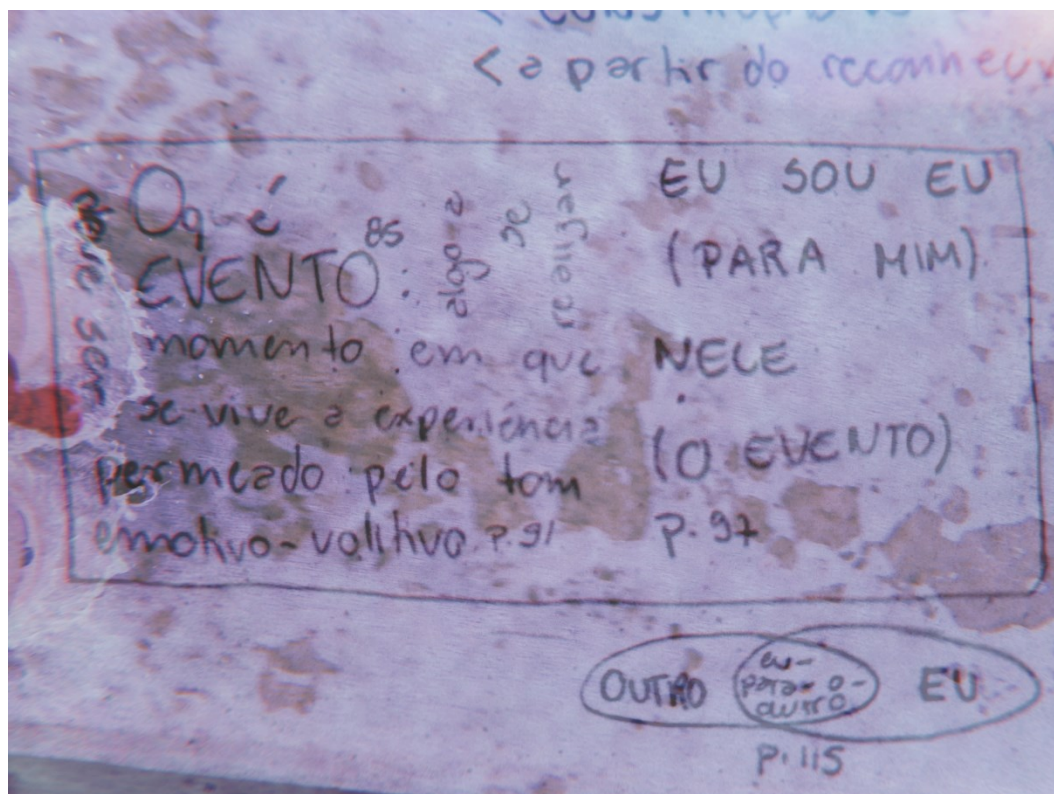 < a partir do
Oqué
85
EVENTO:
algo a
se
refletir
momento em que
se vive a experiência
permeado pelo tom
emotivo-volitivo p.91
deve ser
EU SOU EU
(PARA MIM)
NELE
(O EVENTO)
p.97
OUTRO
eu-
para-o-
outro
EU
p.115